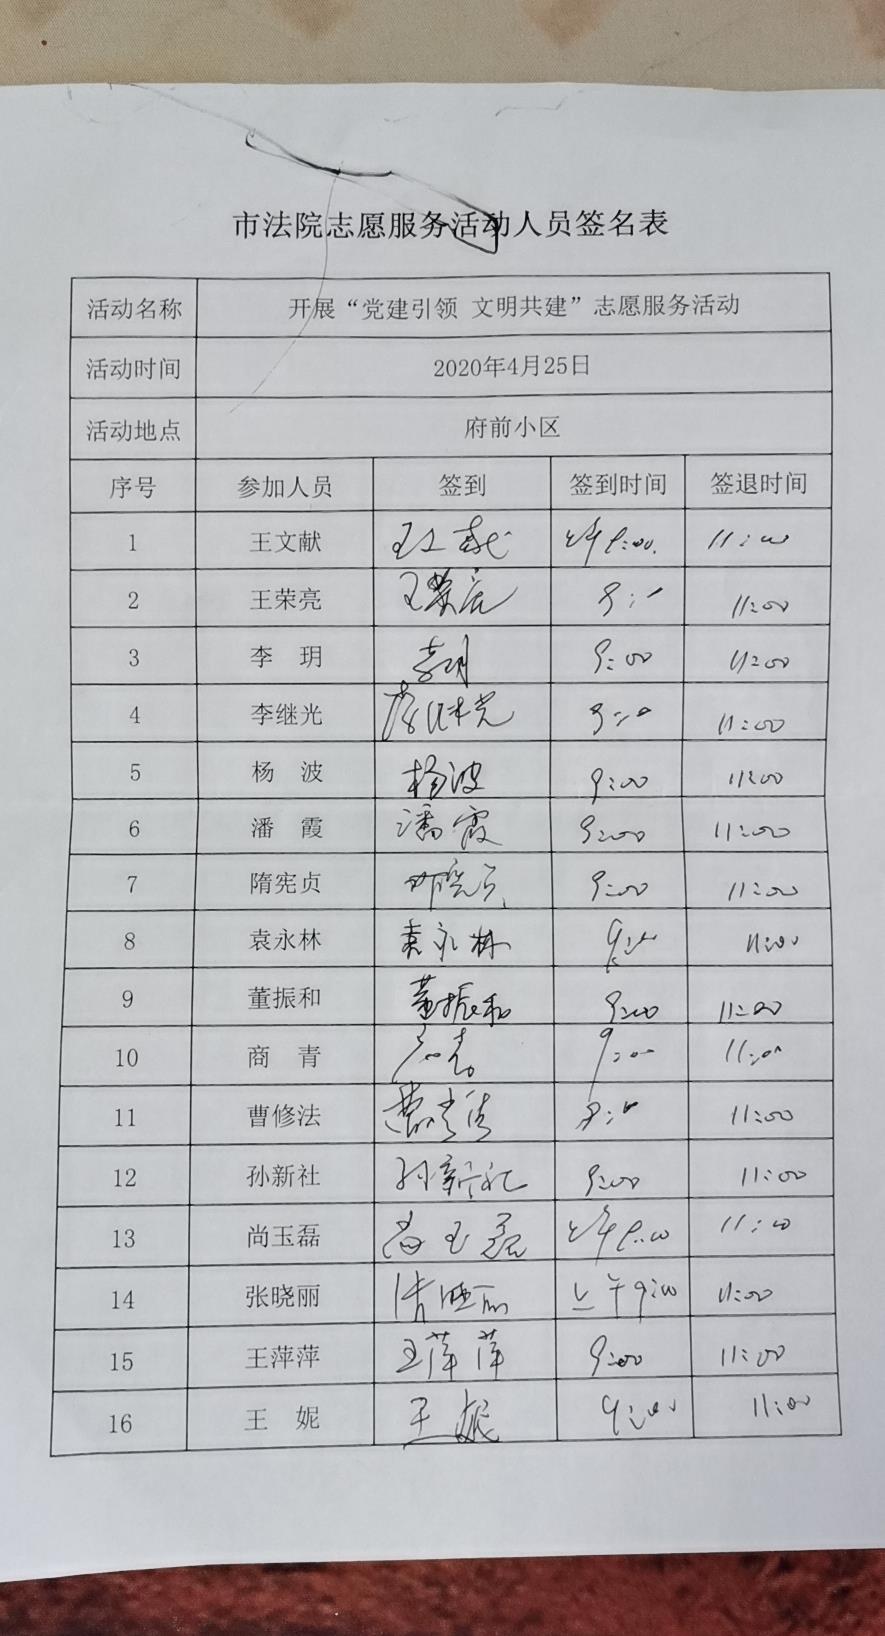 市法院志愿服务活动人员签名表
活动名称 开展“党建引领 文明共建”志愿服务活动
活动时间 2020年4月25日
活动地点 府前小区
序号 参加人员 签到 签到时间 签退时间
1 王文献 王文献 上午9:00. 11:00
2 王荣亮 王荣亮 11:00
3 李 玥 李玥 9:00 11:00
4 李继光 李继光 9:00 11:00
5 杨 波 杨波 9:00 11:00
6 潘 霞 潘霞 9:00 11:00
7 隋宪贞 隋宪贞 9:00 11:00
8 袁永林 袁永林 9:00 11:00
9 董振和 董振和 9:00 11:00
10 商 青 商青 9:00 11:00
11 曹修法 曹修法 11:00
12 孙新社 孙新社 9:00 11:00
13 尚玉磊 尚玉磊 上午9:00 11:00
14 张晓丽 张晓丽 上午9:00 11:00
15 王萍萍 王萍萍 9:00 11:00
16 王 妮 王妮 9:00 11:00